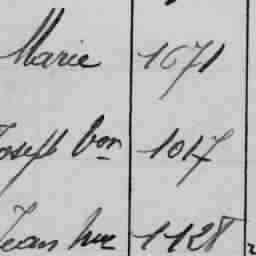 Marie 1671
Joseph bon 1017
Jean 1128